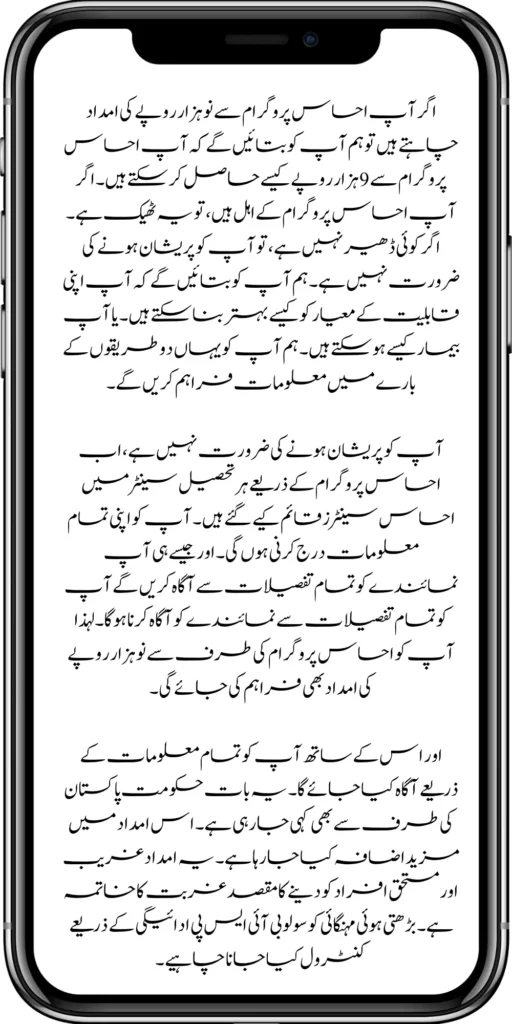 اگر آپ احساس پروگرام سے نو ہزار روپے کی امداد
چاہتے ہیں تو ہم آپ کو بتائیں گے کہ آپ احساس
پروگرام سے 9 ہزار روپے کیسے حاصل کر سکتے ہیں۔ اگر
آپ احساس پروگرام کے اہل ہیں، تو یہ ٹھیک ہے۔
اگر کوئی ڈھیر نہیں ہے، تو آپ کو پریشان ہونے کی
ضرورت نہیں ہے۔ ہم آپ کو بتائیں گے کہ آپ اپنی
قابلیت کے معیار کو کیسے بہتر بنا سکتے ہیں۔ یا آپ
بیمار کیسے ہو سکتے ہیں۔ ہم آپ کو یہاں دو طریقوں کے
بارے میں معلومات فراہم کریں گے۔
آپ کو پریشان ہونے کی ضرورت نہیں ہے، اب
احساس پروگرام کے ذریعے ہر تحصیل سینٹر میں
احساس سینٹرز قائم کیے گئے ہیں۔ آپ کو اپنی تمام
معلومات درج کرنی ہوں گی۔ اور جیسے ہی آپ
نمائندے کو تمام تفصیلات سے آگاہ کریں گے آپ
کو تمام تفصیلات سے نمائندے کو آگاہ کرنا ہوگا۔ لہذا
آپ کو احساس پروگرام کی طرف سے نو ہزار روپے
کی امداد بھی فراہم کی جائے گی۔
اور اس کے ساتھ آپ کو تمام معلومات کے
ذریعے آگاہ کیا جائے گا۔ یہ بات حکومت پاکستان
کی طرف سے بھی کہی جا رہی ہے۔ اس امداد میں
مزید اضافہ کیا جا رہا ہے۔ یہ امداد غریب
اور مستحق افراد کو دینے کا مقصد غربت کا خاتمہ
ہے۔ بڑھتی ہوئی مہنگائی کو سولو بی آئی ایس پی ادائیگی کے ذریعے
کنٹرول کیا جانا چاہیے۔